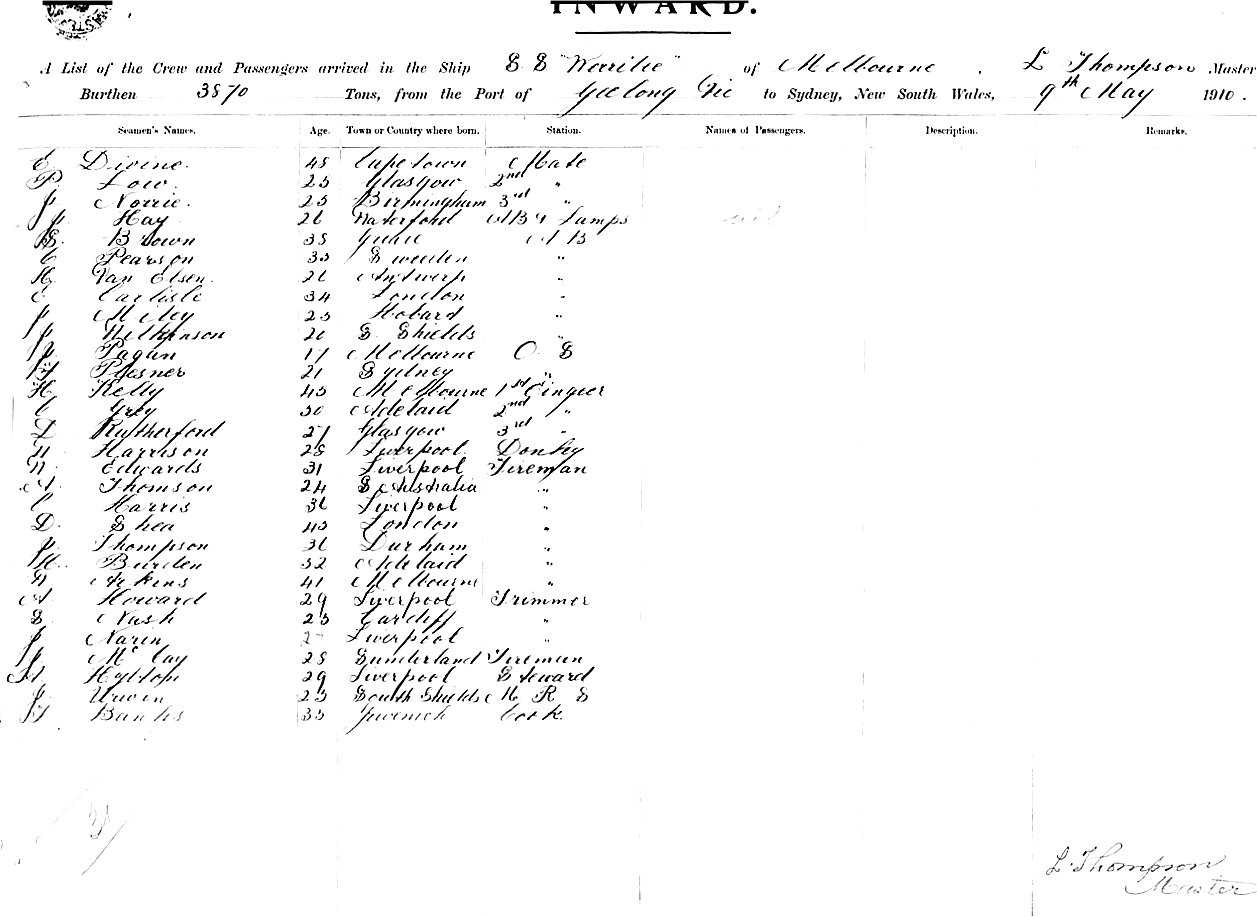 INWARD.
A List of the Crew and Passengers arrived in the Ship S S "Werribee" of Melbourne, L Thompson Master
Burthen 3870 Tons, from the Port of Geelong Vic to Sydney, New South Wales, 9th May 1910.
Seamen's Names. Age. Town or Country where born. Station. Names of Passengers. Description. Remarks.
E Divine. 48 Cape town Mate
P. Low. 25 Glasgow 2nd "
J Norrie. 25 Birmingham 3rd "
J Hay 26 Waterford AB & Lamps nil
S. Brown 38 A B
C Pearson 35 Sweeden "
H. Van Elsen. 26 Antwerp "
C Carlisle 34 London "
J Miley 25 Hobard "
J Wilkinson 26 S Shields "
J. Pagan 17 Melbourne O S
F Plesner 21 Sydney "
H. Kelly 45 Melbourne 1st Eingeer
C Grey 30 Adelaid 2nd "
D Rutherford 27 Glasgow 3rd "
W Harrison 28 Liverpool Donky
W. Edwards 31 Liverpool Fireman
A. Thomson 24 S Australia "
C Harris 36 Liverpool "
D. Shea 45 London "
J. Thompson 36 Durham "
H. Burden 32 Adelaid "
W Atkins 41 Melbourne "
A Howard 29 Liverpool Trimmer
S Nash 25 Cardiff "
J Naren Liverpool "
J McCay 28 Sunderland Fireman
H Hyslop 29 Liverpool Steward
J. Urwin 25 South Shields M R S
F Banks 35 Cook.
L. Thompson
Master